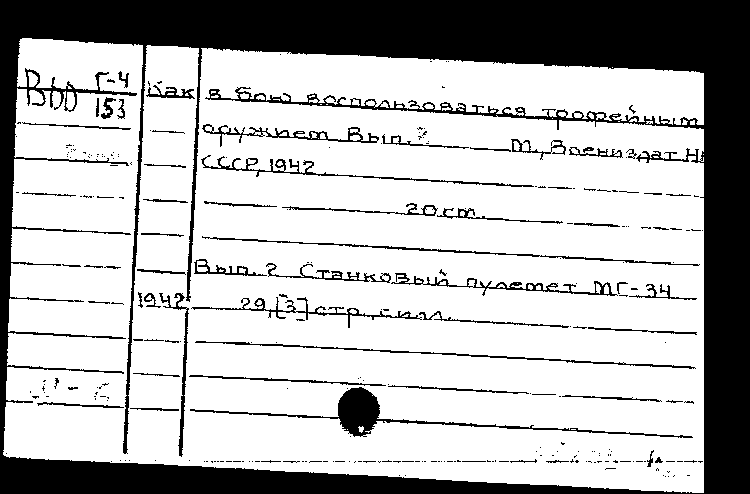 ВЬО Г-4
153
Как в бою воспользоваться трофейным
оружием Вып. 2 М., Воениздат
СССР, 1942.
20 см.
Вып. 2 Станковый пулемет МГ-34
1942 29,[3] стр., с илл.